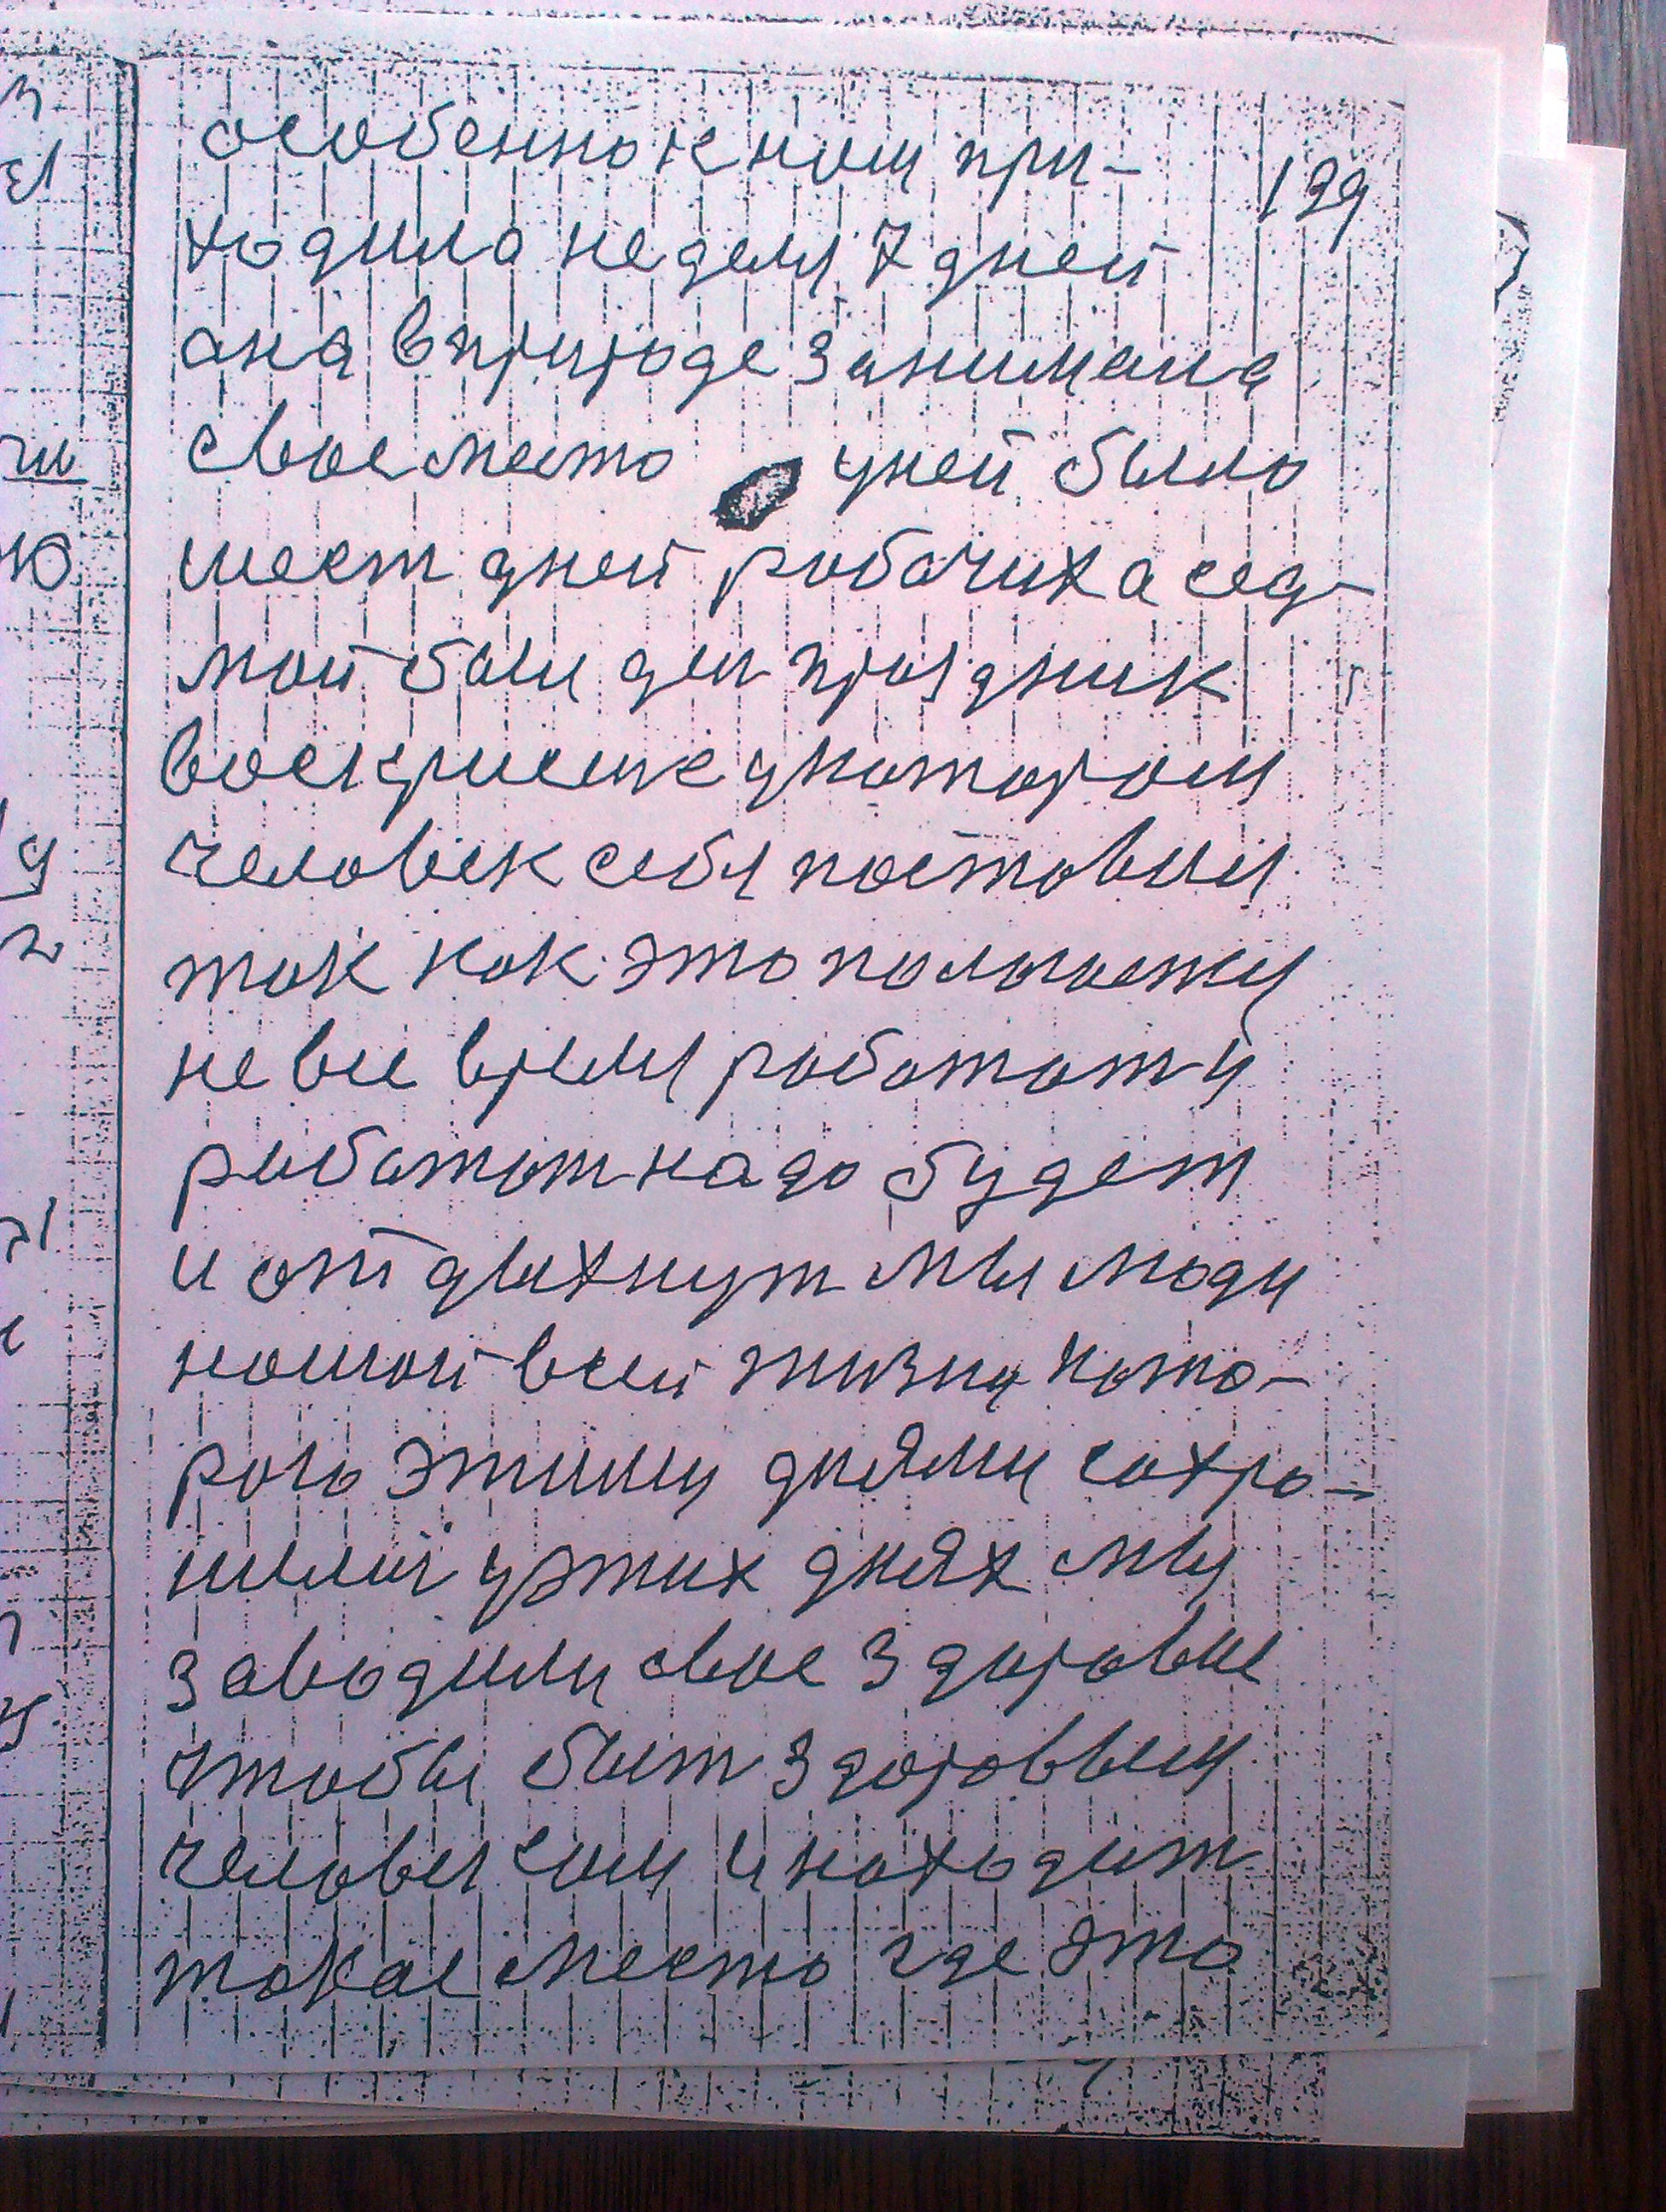 особенно к ном при-
139
ходила неделя 7 дней
она в природе занимала
свое место у ней было
шест дней робочих а сед-
мой был ден праздник
воскрисение укотором
человек себя поставил
так как это положену
не все время работат и
работат надо будет
и отдыхнут мы люди
нашой всей жизни кото-
рого этими днями сохро-
нили у этих днях мы
заводили свое здоровье
чтобы быт здоровым
человеком и находит
такое место где это